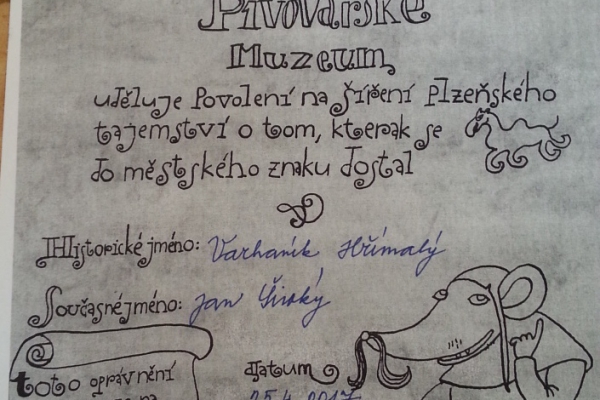 Pivovarské
Muzeum
uděluje Povolení na šíření Plzeňského
tajemství o tom, kterak se
do městského znaku dostal
Historické jméno: Varhaník Hřímalý
Současné jméno: Jan Široký
toto oprávnění
Datum
25.4.2017